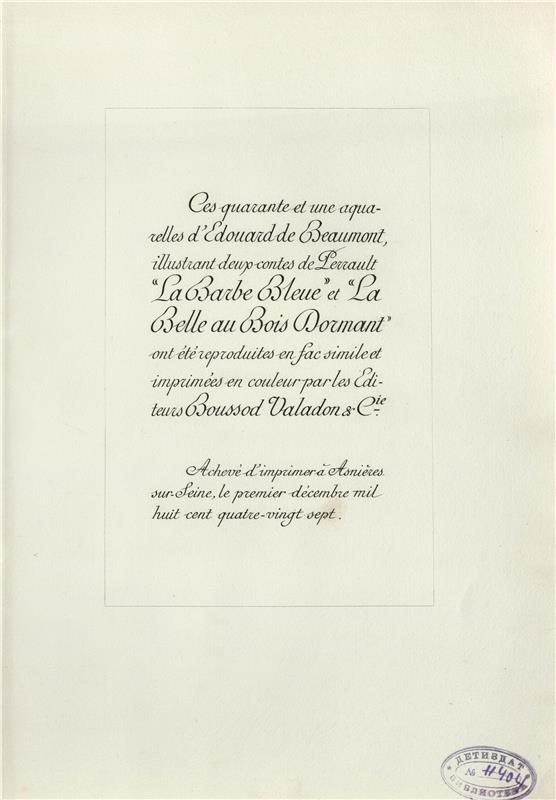 Ces quarante et une aqua-
relles d'Edouard de Beaumont,
illustrant deux contes de Perrault
"La Barbe Bleue" et "La
Belle au Bois Dormant"
ont été reproduites en fac simile et
imprimées en couleur par les Edi-
teurs Boussod Valadon & Cie.
Achevé d'imprimer à Asnières
sur-Seine, le premier décembre mil
huit cent quatre-vingt sept.
ДЕТИЗДАТ
№
БИБЛИОТЕКА